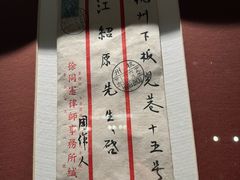 杭州下板兒巷十五号
江紹原先生啓
徐同憲律師事務所緘
周作人